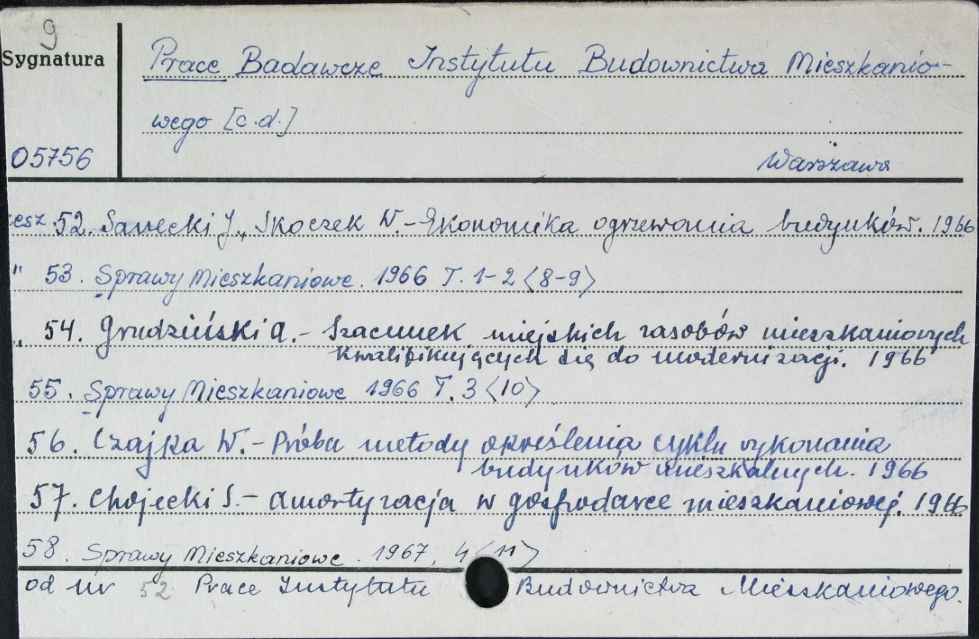 9
Sygnatura
Prace Badawcze Instytutu Budownictwa Mieszkanio-
wego [c.d.]
05756
Warszawa
zesz 52. Sawecki J., Skoczek W. - Ekonomika ogrzewania budynków. 1966
" 53. Sprawy Mieszkaniowe. 1966 T. 1-2 <8-9>
" 54. Grudziński A. - Szacunek miejskich zasobów mieszkaniowych
kwalifikujących się do modernizacji. 1966
55. Sprawy Mieszkaniowe 1966 T. 3 <10>
56. Czajka W. - Próba metody określenia cyklu wykonania
budynków mieszkalnych. 1966
57. Chojecki S. - Amortyzacja w gospodarce mieszkaniowej. 1966
58. Sprawy Mieszkaniowe. 1967. 4 <11>
od nr 52 Prace Instytutu Budownictwa Mieszkaniowego.